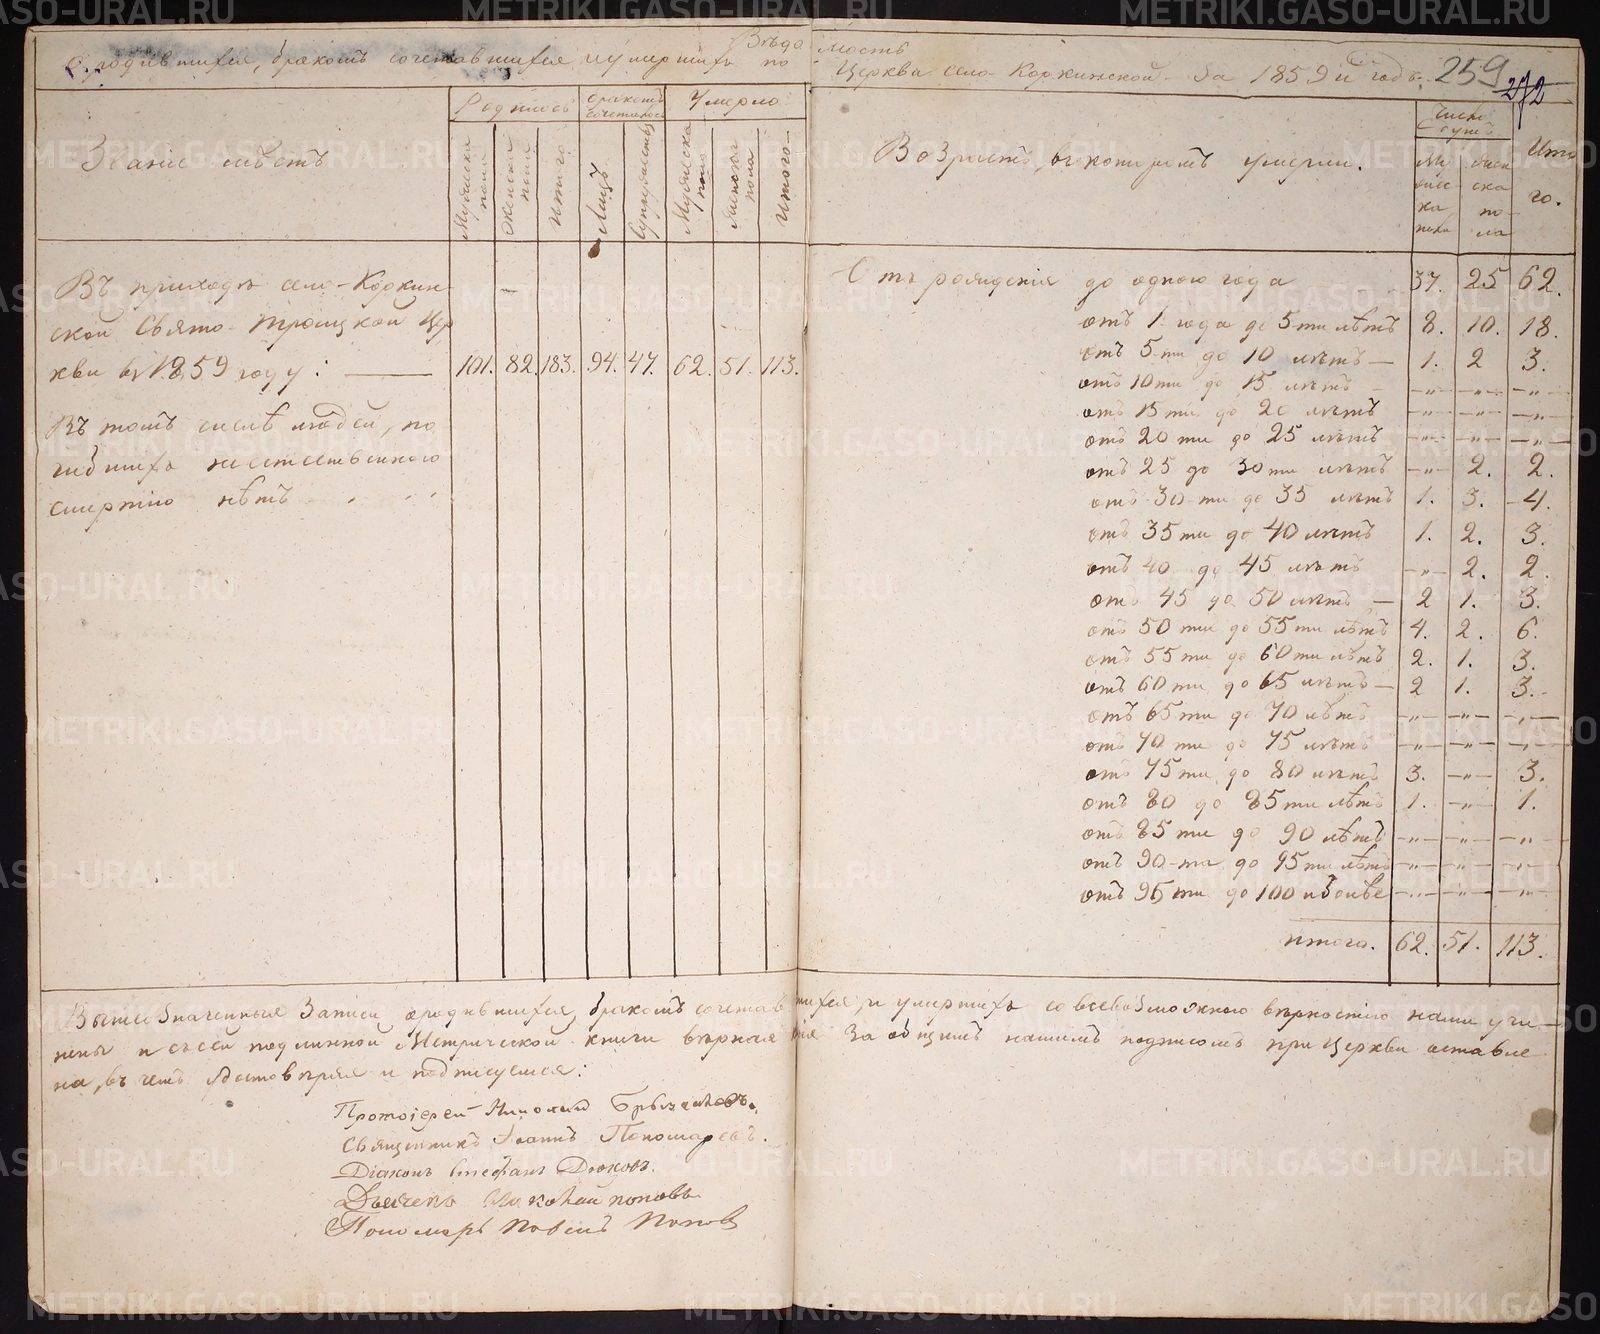 Вѣдомость
О родившихся, бракомъ сочетавшихся и умершихъ по Церкви село-Коркинской за 1859й годъ.
259
272
Званіе мѣстъ
Родилось
Бракомъ сочеталось
Умерло
Мужеска пола
Женска пола
Итого
Лицъ
Супружествъ
Мужеска пола
Женска пола
Итого
Въ приходѣ село-Коркин
ской Свято-Троицкой Цер
кви въ 1859 году: 101. 82. 183. 94. 47. 62. 51. 113.
Въ томъ числѣ людей, по
гибшихъ неестественною
смертію нѣтъ
Возрастъ, въ которомъ умерли.
Число душъ
Мужеска пола
Женска пола
Итого.
Отъ рожденія до одного года 37. 25 62.
отъ 1. года до 5ти лѣтъ 8. 10. 18.
отъ 5-ти до 10 лѣтъ — 1. 2 3.
отъ 10ти до 15 лѣтъ — „ — „ — „
отъ 15ти до 20 лѣтъ — „ — „ — „
отъ 20ти до 25 лѣтъ — „ — „ — „
отъ 25 до 30ти лѣтъ — „ — 2. 2.
отъ 30-ти до 35 лѣтъ 1. 3. 4.
отъ 35ти до 40 лѣтъ 1. 2. 3.
отъ 40 до 45 лѣтъ — „ — 2. 2.
отъ 45 до 50 лѣтъ — 2 1. 3.
отъ 50ти до 55ти лѣтъ 4. 2. 6.
отъ 55ти до 60ти лѣтъ 2. 1. 3.
отъ 60ти до 65 лѣтъ — 2 1. 3.
отъ 65ти до 70 лѣтъ — „ — „ — „
отъ 70ти до 75 лѣтъ — „ — „ — „
отъ 75ти до 80 лѣтъ 3. — „ — 3.
отъ 80 до 85ти лѣтъ 1. — „ — 1.
отъ 85ти до 90 лѣтъ — „ — „ — „
отъ 90-та до 95ти лѣтъ — „ — „ — „
отъ 95ти до 100 и болѣе — „ — „ — „
итого. 62. 51. 113.
Вышеозначенныя записи о родившихся, бракомъ сочетавшихся, и умершихъ со всевозможною вѣрностію нами учи—
нены и съ сей подлинной Метрической книги вѣрная копія за общимъ нашимъ подписомъ при Церкви оставле
на, въ чемъ удостовѣряя и подписуемся:
Протоіерей Николай
Священникъ Іоаннъ Пономаревъ.
Діаконъ Стефанъ
Дьячекъ Поповъ
Пономарь Павелъ Попов
METRIKI.GASO-URAL.RU